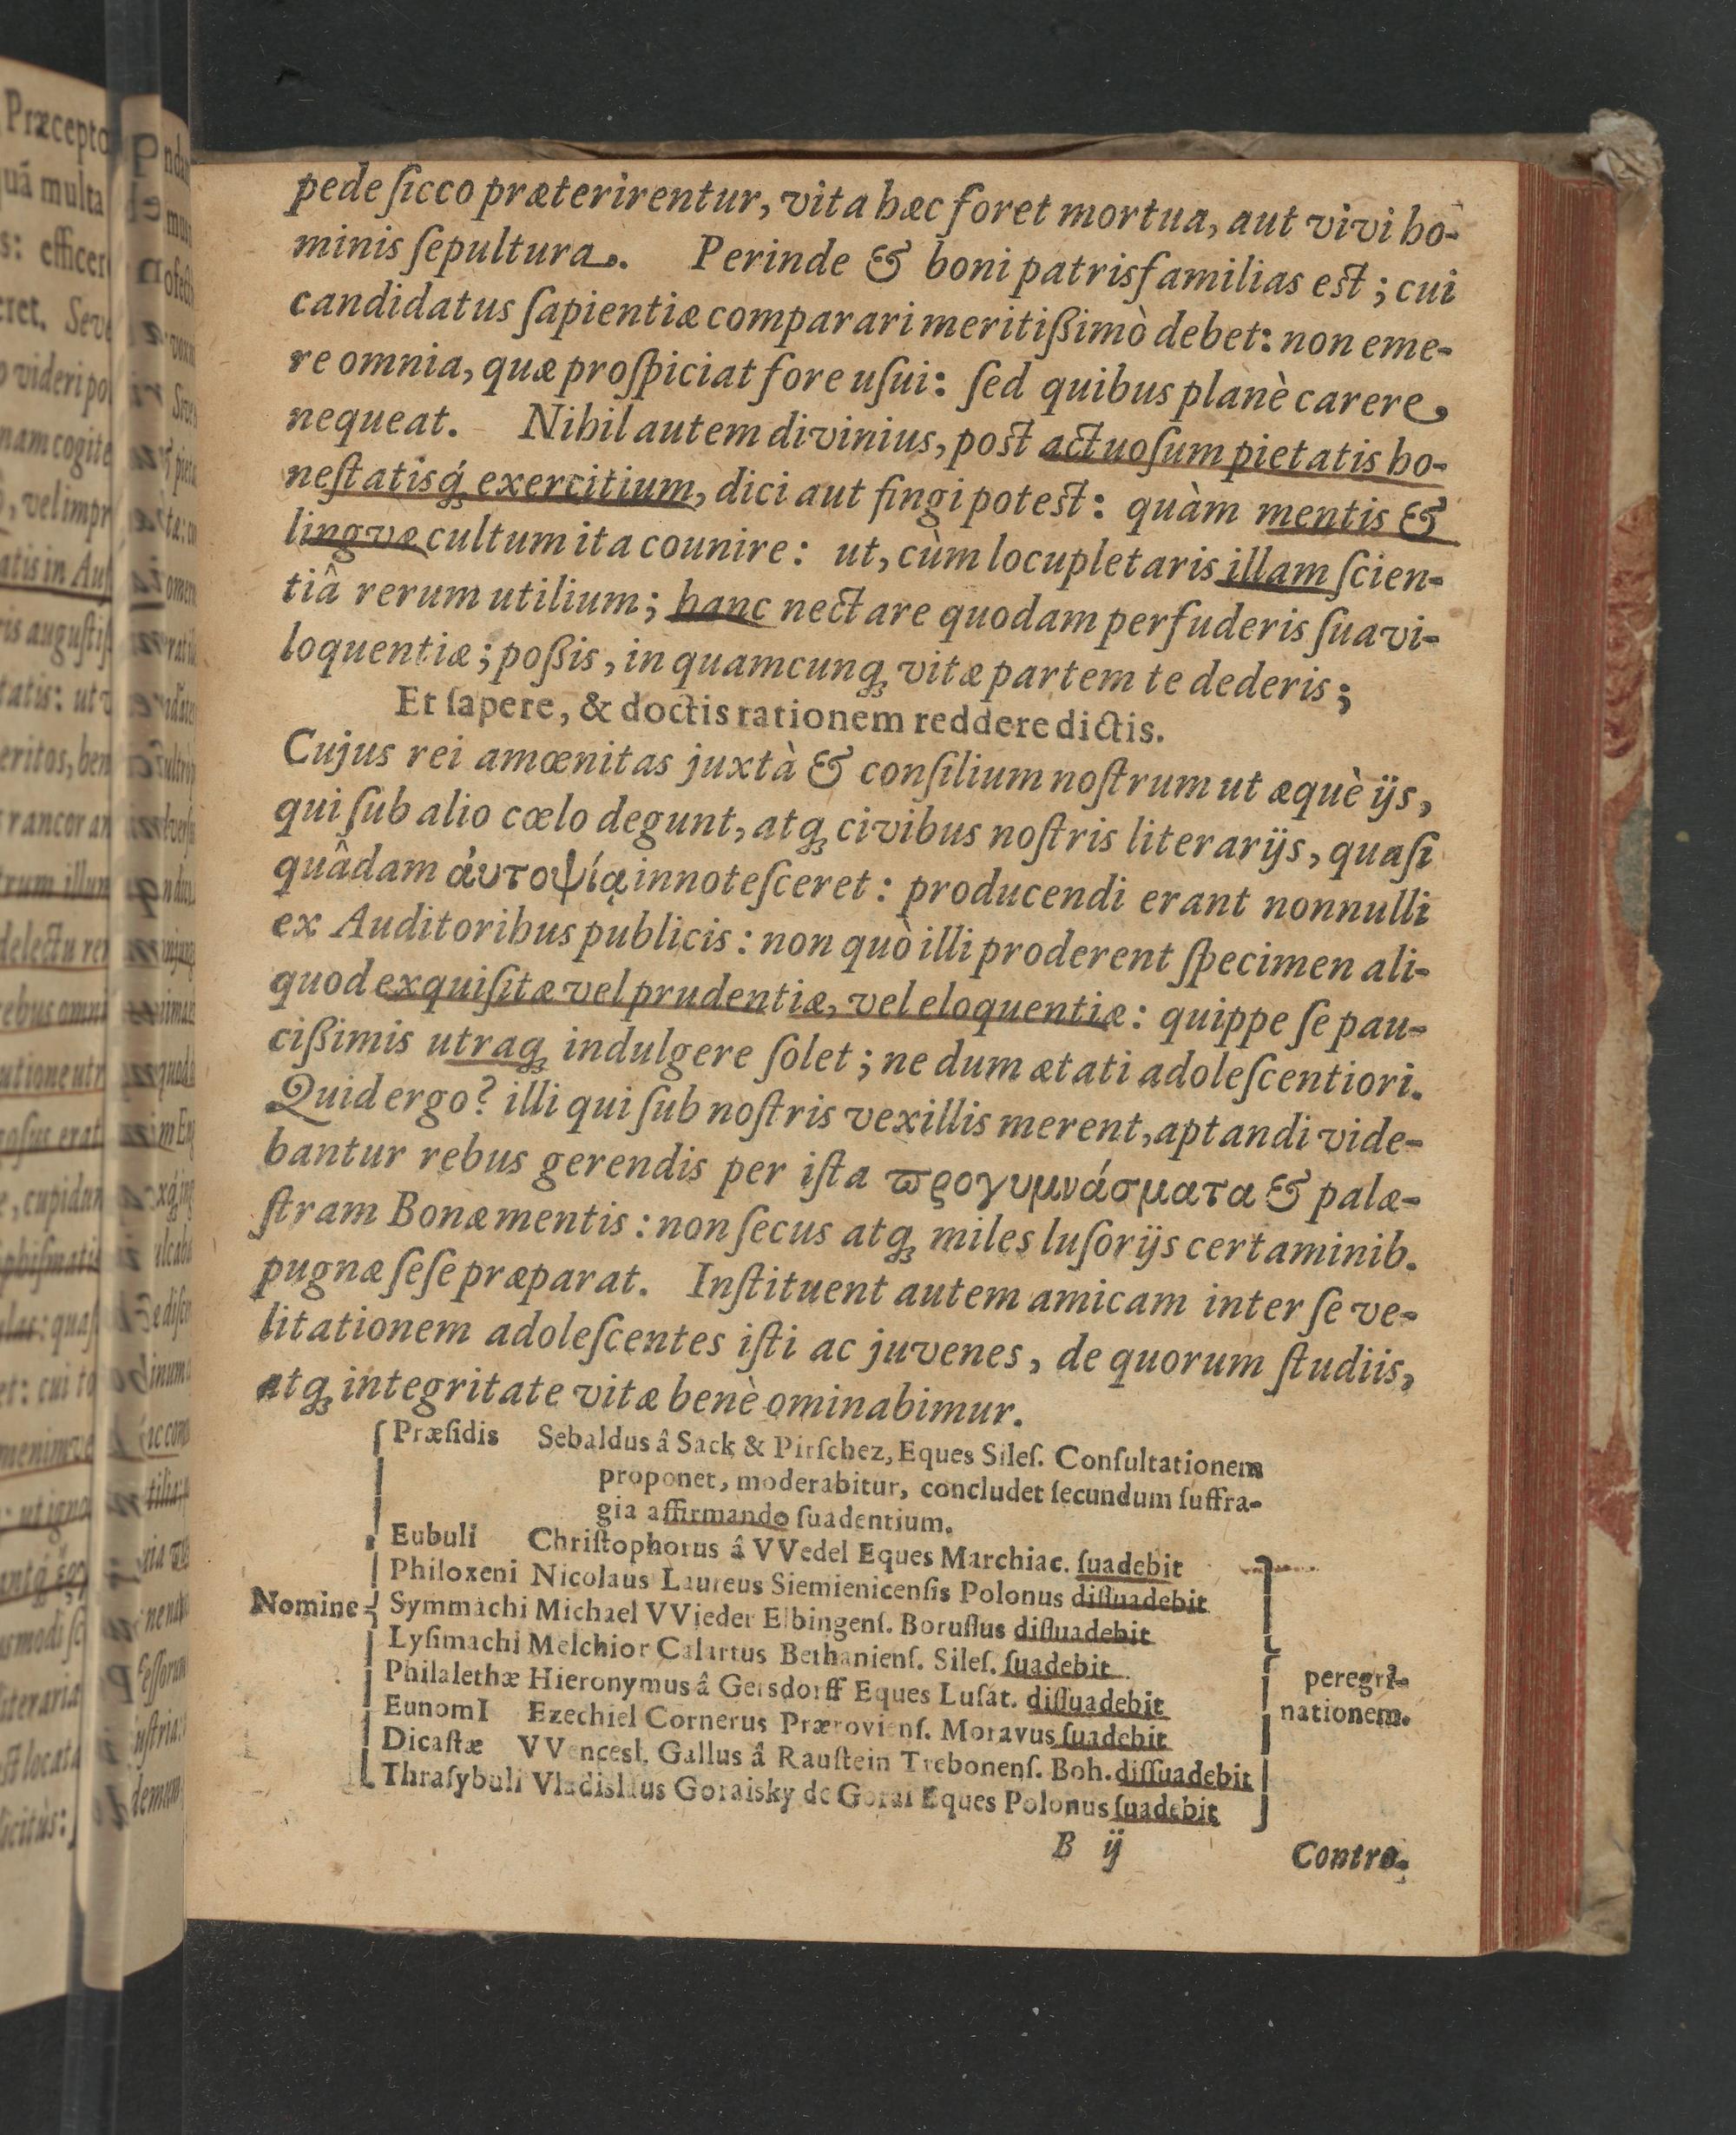 pede ſicco præterirentur, vita hæc foret mortua, aut vivi ho-
minis ſepultura. Perinde & boni patrisfamilias est; cui
candidatus ſapientiæ comparari meritißimò debet: non eme-
re omnia, quæ proſpiciat fore uſui: ſed quibus planè carere
nequeat. Nihil autem divinius, post actuoſum pietatis ho-
neſtatisq́ꝫ exercitium, dici aut fingi potest: quàm mentis &
lingvæ cultum ita counire: ut, cùm locupletaris illam ſcien-
tiâ rerum utilium; hanc nectare quodam perfuderis ſuavi-
loquentiæ; poßis, in quamcunqꝫ vitæ partem te dederis;
Et ſapere, & doctis rationem reddere dictis.
Cujus rei amœnitas juxtà & conſilium noſtrum ut æquè ijs,
qui ſub alio cœlo degunt, atqꝫ civibus noſtris literarijs, quaſi
quâdam ἀυτοψίᾳ innoteſceret: producendi erant nonnulli
ex Auditoribus publicis: non quò illi proderent ſpecimen ali-
quod exquiſitæ vel prudentiæ, vel eloquentiæ: quippe ſe pau-
cißimis utraqꝫ indulgere ſolet; ne dum ætati adoleſcentiori.
Quid ergo? illi qui ſub noſtris vexillis merent, aptandi vide-
bantur rebus gerendis per iſta ϖρογυμνάσματα & palæ-
ſtram Bonæ mentis: non ſecus atqꝫ miles luſorijs certaminib.
pugnæ ſeſe præparat. Inſtituent autem amicam inter ſe ve-
litationem adoleſcentes iſti ac juvenes, de quorum ſtudiis,
atqꝫ integritate vitæ benè ominabimur.
Præſidis Sebaldus â Sack & Pirſchez, Eques Sileſ. Conſultationem
proponet, moderabitur, concludet ſecundum ſuffra-
gia affirmando ſuadentium.
Eubuli Chriſtophorus â VVedel Eques Marchiac. ſuadebit
Philoxeni Nicolaus Laureus Siemienicenſis Polonus diſſuadebit
Nomine Symmachi Michael VVieder Elbingenſ. Boruſſus diſſuadebit
Lyſimachi Melchior Calartus Bethanienſ. Sileſ. ſuadebit
Philalethæ Hieronymus â Gersdorff Eques Luſat. diſſuadebit
EunomI Ezechiel Cornerus Prærovienſ. Moravus ſuadebit
Dicaſtæ VVencesl. Gallus â Rauſtein Trebonenſ. Boh. diſſuadebit
Thraſybuli Vladislaus Goraisky de Gorai Eques Polonus ſuadebit
peregri-
nationem.
B ij Contro-